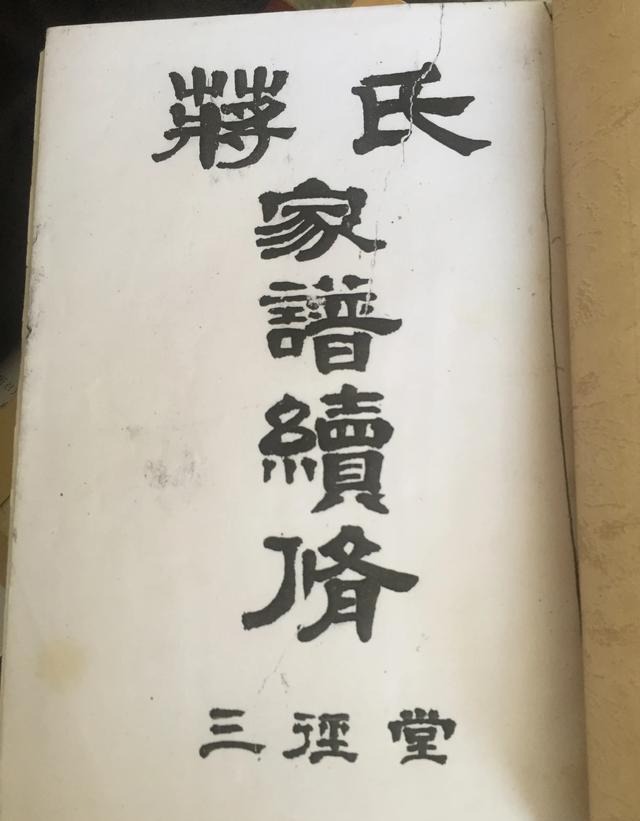 蔣氏
家
譜
續
脩
三徑堂